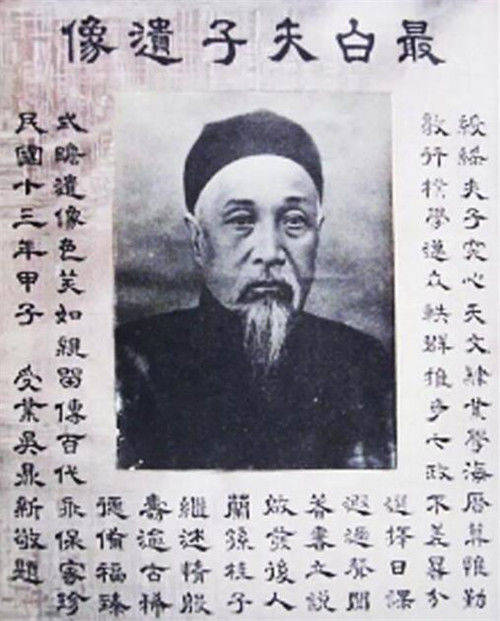 最白夫子遺像
夫子究心天文肄業學海曆算維勤
敦行樸學邁众軼群推步七政不差晷分
選擇日課
遐邇聲聞
著書立說
啟發後人
蘭孫桂子
繼述情殷
壽逾古稀
德備福臻
式瞻遺像色笑如親留傳百代永保家珍
民國十三年甲子 受業吳鼎新敬題